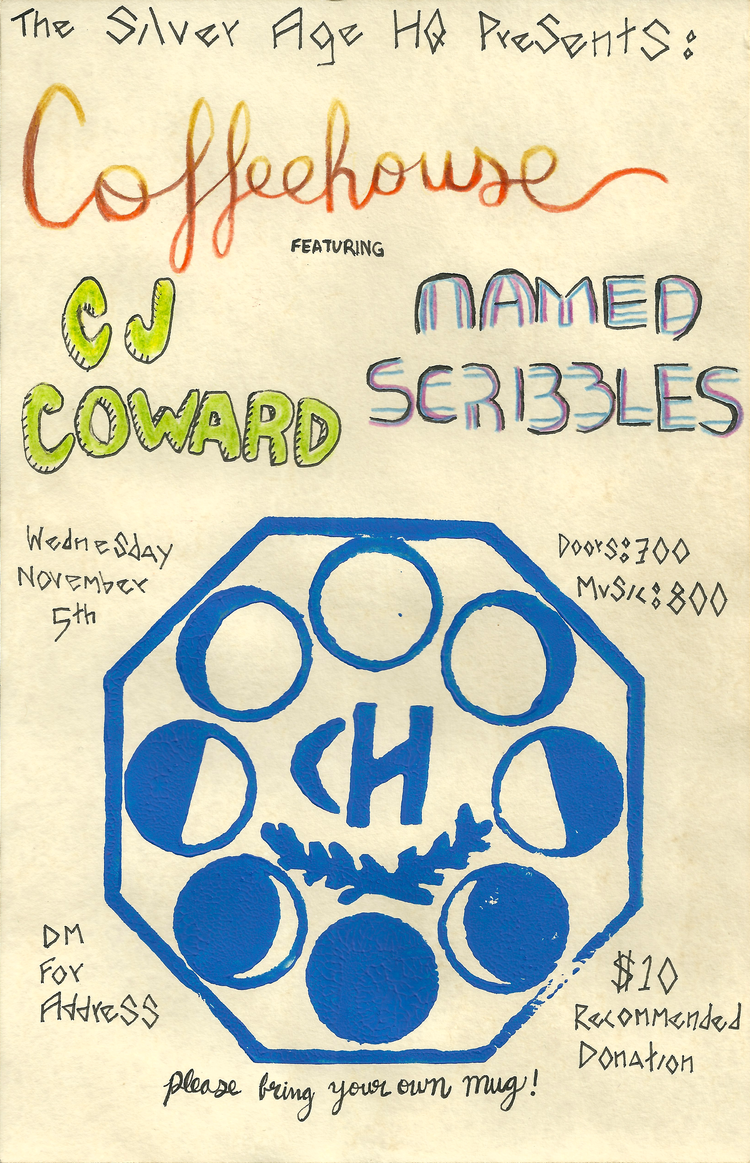 The Silver Age HQ Presents:
Coffeehouse
FEATURING
CJ
COWARD
NAMED
SCRIBBLES
Wednesday
November
5th
Doors:700
Music:800
CH
DM
For
Address
$10
Recommended
Donation
please bring your own mug!